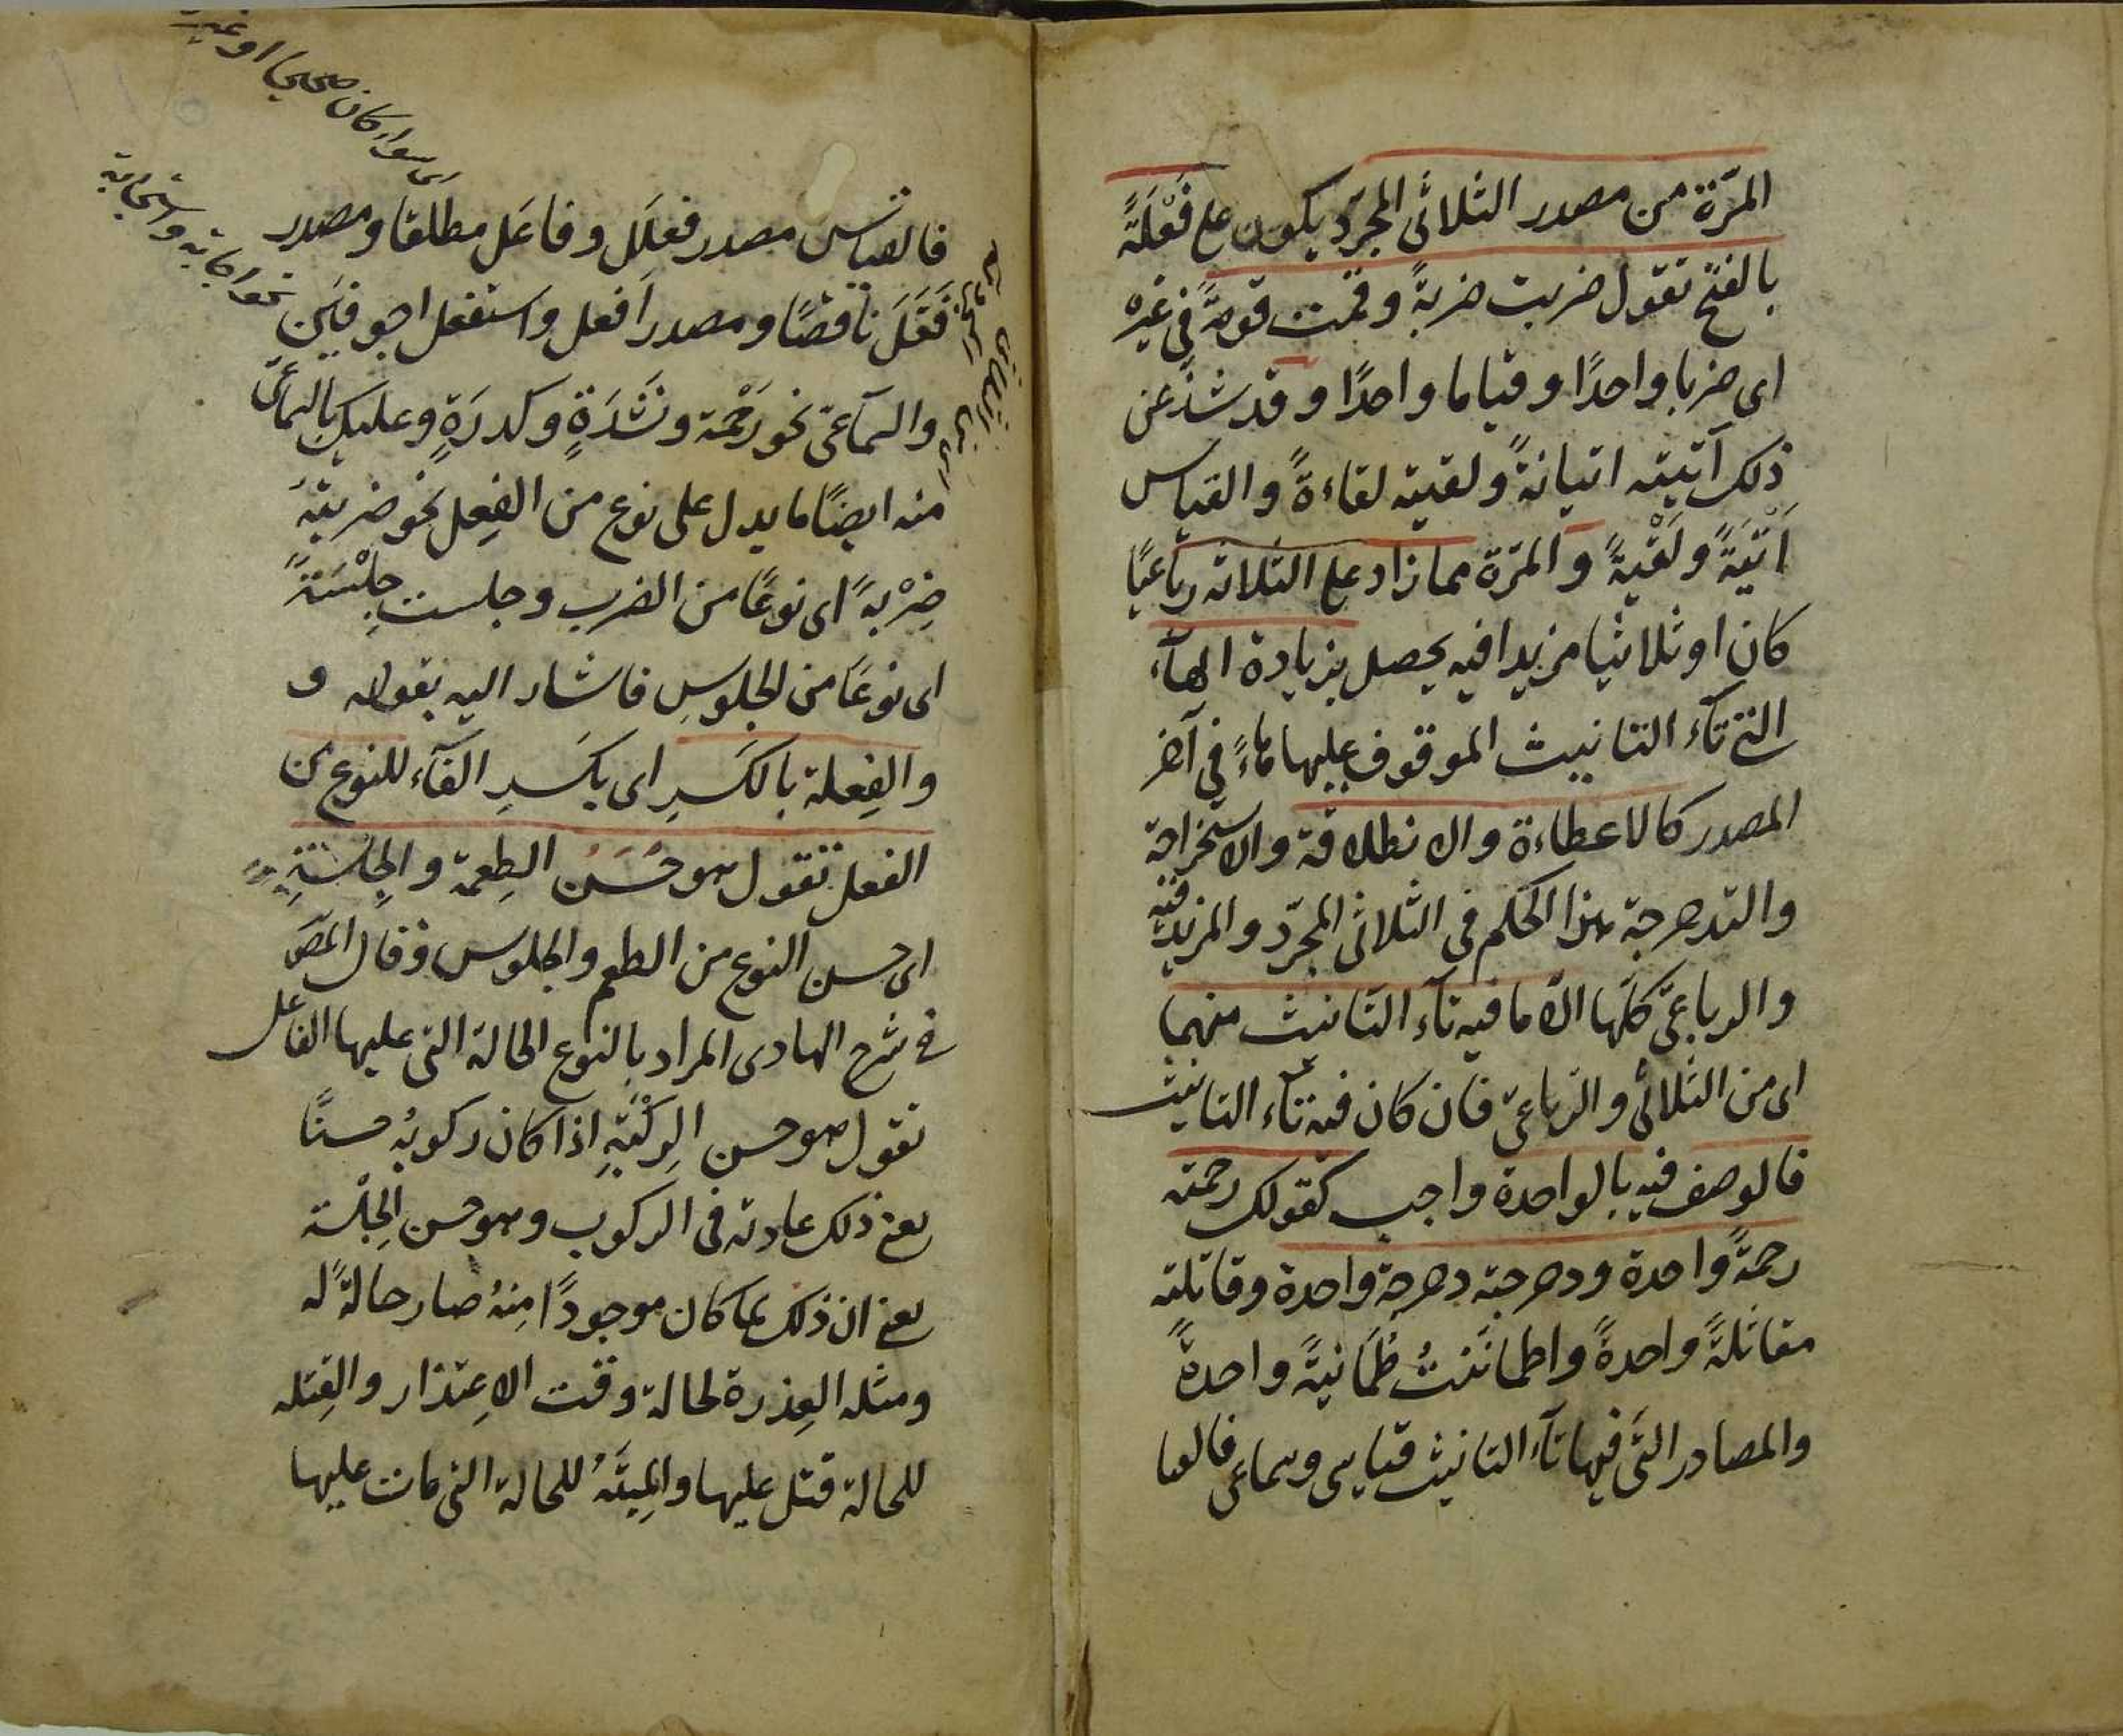 المرّة من مصدر الثلاثى المجرّد يكون على فَعْلَةً
بالفتح تقول ضربت ضربةً وقمت قومةً فى غيره
اى ضربا واحدًا وقياما واحدًا وقد شذّ عن
ذلك آتيته اتيانةً ولقيته لقاءةً والقياس
اَتْيَةً ولَقْيَةً والمرّة مما زاد على الثلاثة رباعيًا
كان او ثلاثيا مزيدا فيه يحصل بزيادة الهآء
التى تآء التانيث الموقوف عليها هاءً فى آخر
المصدر كالاعطاءة والانطلاقة والاستخراجة
والتدحرجة هذا الحكم فى الثلاثى المجرّد والمزيد فيه
والرباعىّ كلّها الّا ما فيه تآء التانيث منهما
اى من الثلاثى والرّباعىّ فان كان فيه تاء التانيث
فالوصف فيه بالواحدة واجب كقولك رحمته
رحمةً واحدة ودحرجته دحرجة واحدة وقاتلته
مقاتلةً واحدةً واطمانَنتُ طُمَانيةً واحدةً
والمصادر التّى فيها تآء التانيث قياسى وسماعى فالقيا
فالقياس مصدر فعلَل وفاعَل مطلقا ومصدر
فَعَّلَ ناقصًا ومصدر اَفعل واستفعل اجوفين
والسّماعىّ نحو رَحْمة ونَشْدَةٍ وكدرَةٍ وعليك بالسّماعىّ
منه ايضًا ما يدل على نوع من الفِعل نحو ضربتهُ
ضِرْبةً اى نوعًا من الضرب وجلست جِلْسَةً
اى نوعًا من الجلوسِ فاشار اليه بقوله و
والفِعلة بالكَسرِ اى بكَسرِ الفآء للنوع من
الفعل تقول هو حُسَنُ الطِعمة والجِلْسَةِ
اى حسن النوع من الطعم والجلوس وقال المصَ
فى شرح الهادى المراد بالنوع الحالة التى عليها الفاعل
تقول هو حسن الرِكْبَةِ اذا كان ركوبُه حسنًا
يعنى ذلك عادته فى الركوب وهو حسن الجِلْسَة
يعنى ان ذلك لما كان موجودًا مِنهُ صار حالةً له
ومثله العِذرة لحالة وقت الاِعتذار والقِتله
للحالة قتل عليها والمِيتَةُ للحالة التى مات عليها
سواء كان صحيحا او غير
نحو اجابة واستجابة